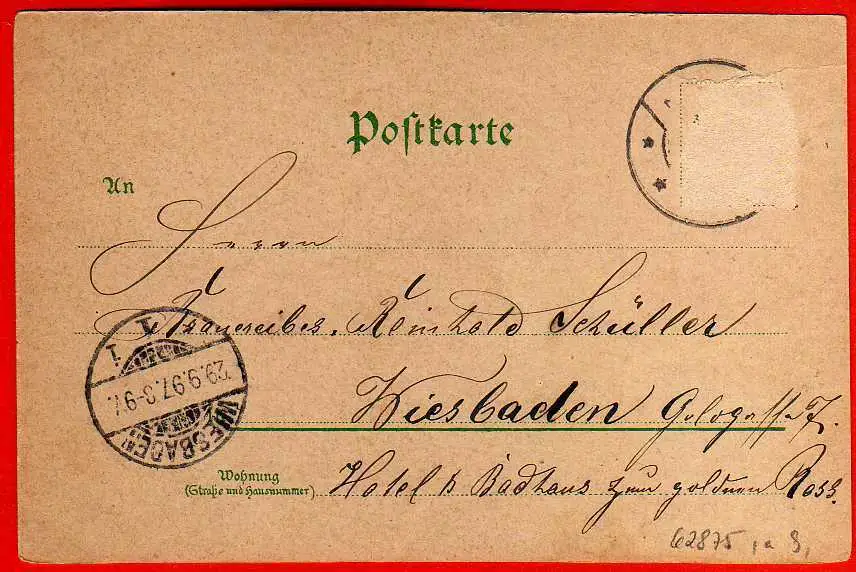 Postkarte
An
Herrn
Reinhold Schüller
Wiesbaden Goldgasse 7.
Wohnung
(Straße und Hausnummer)
Hotel & Badhaus zum goldnen Ross.
WIESBADEN
29.9.97.8-9V.
1.
1
62875